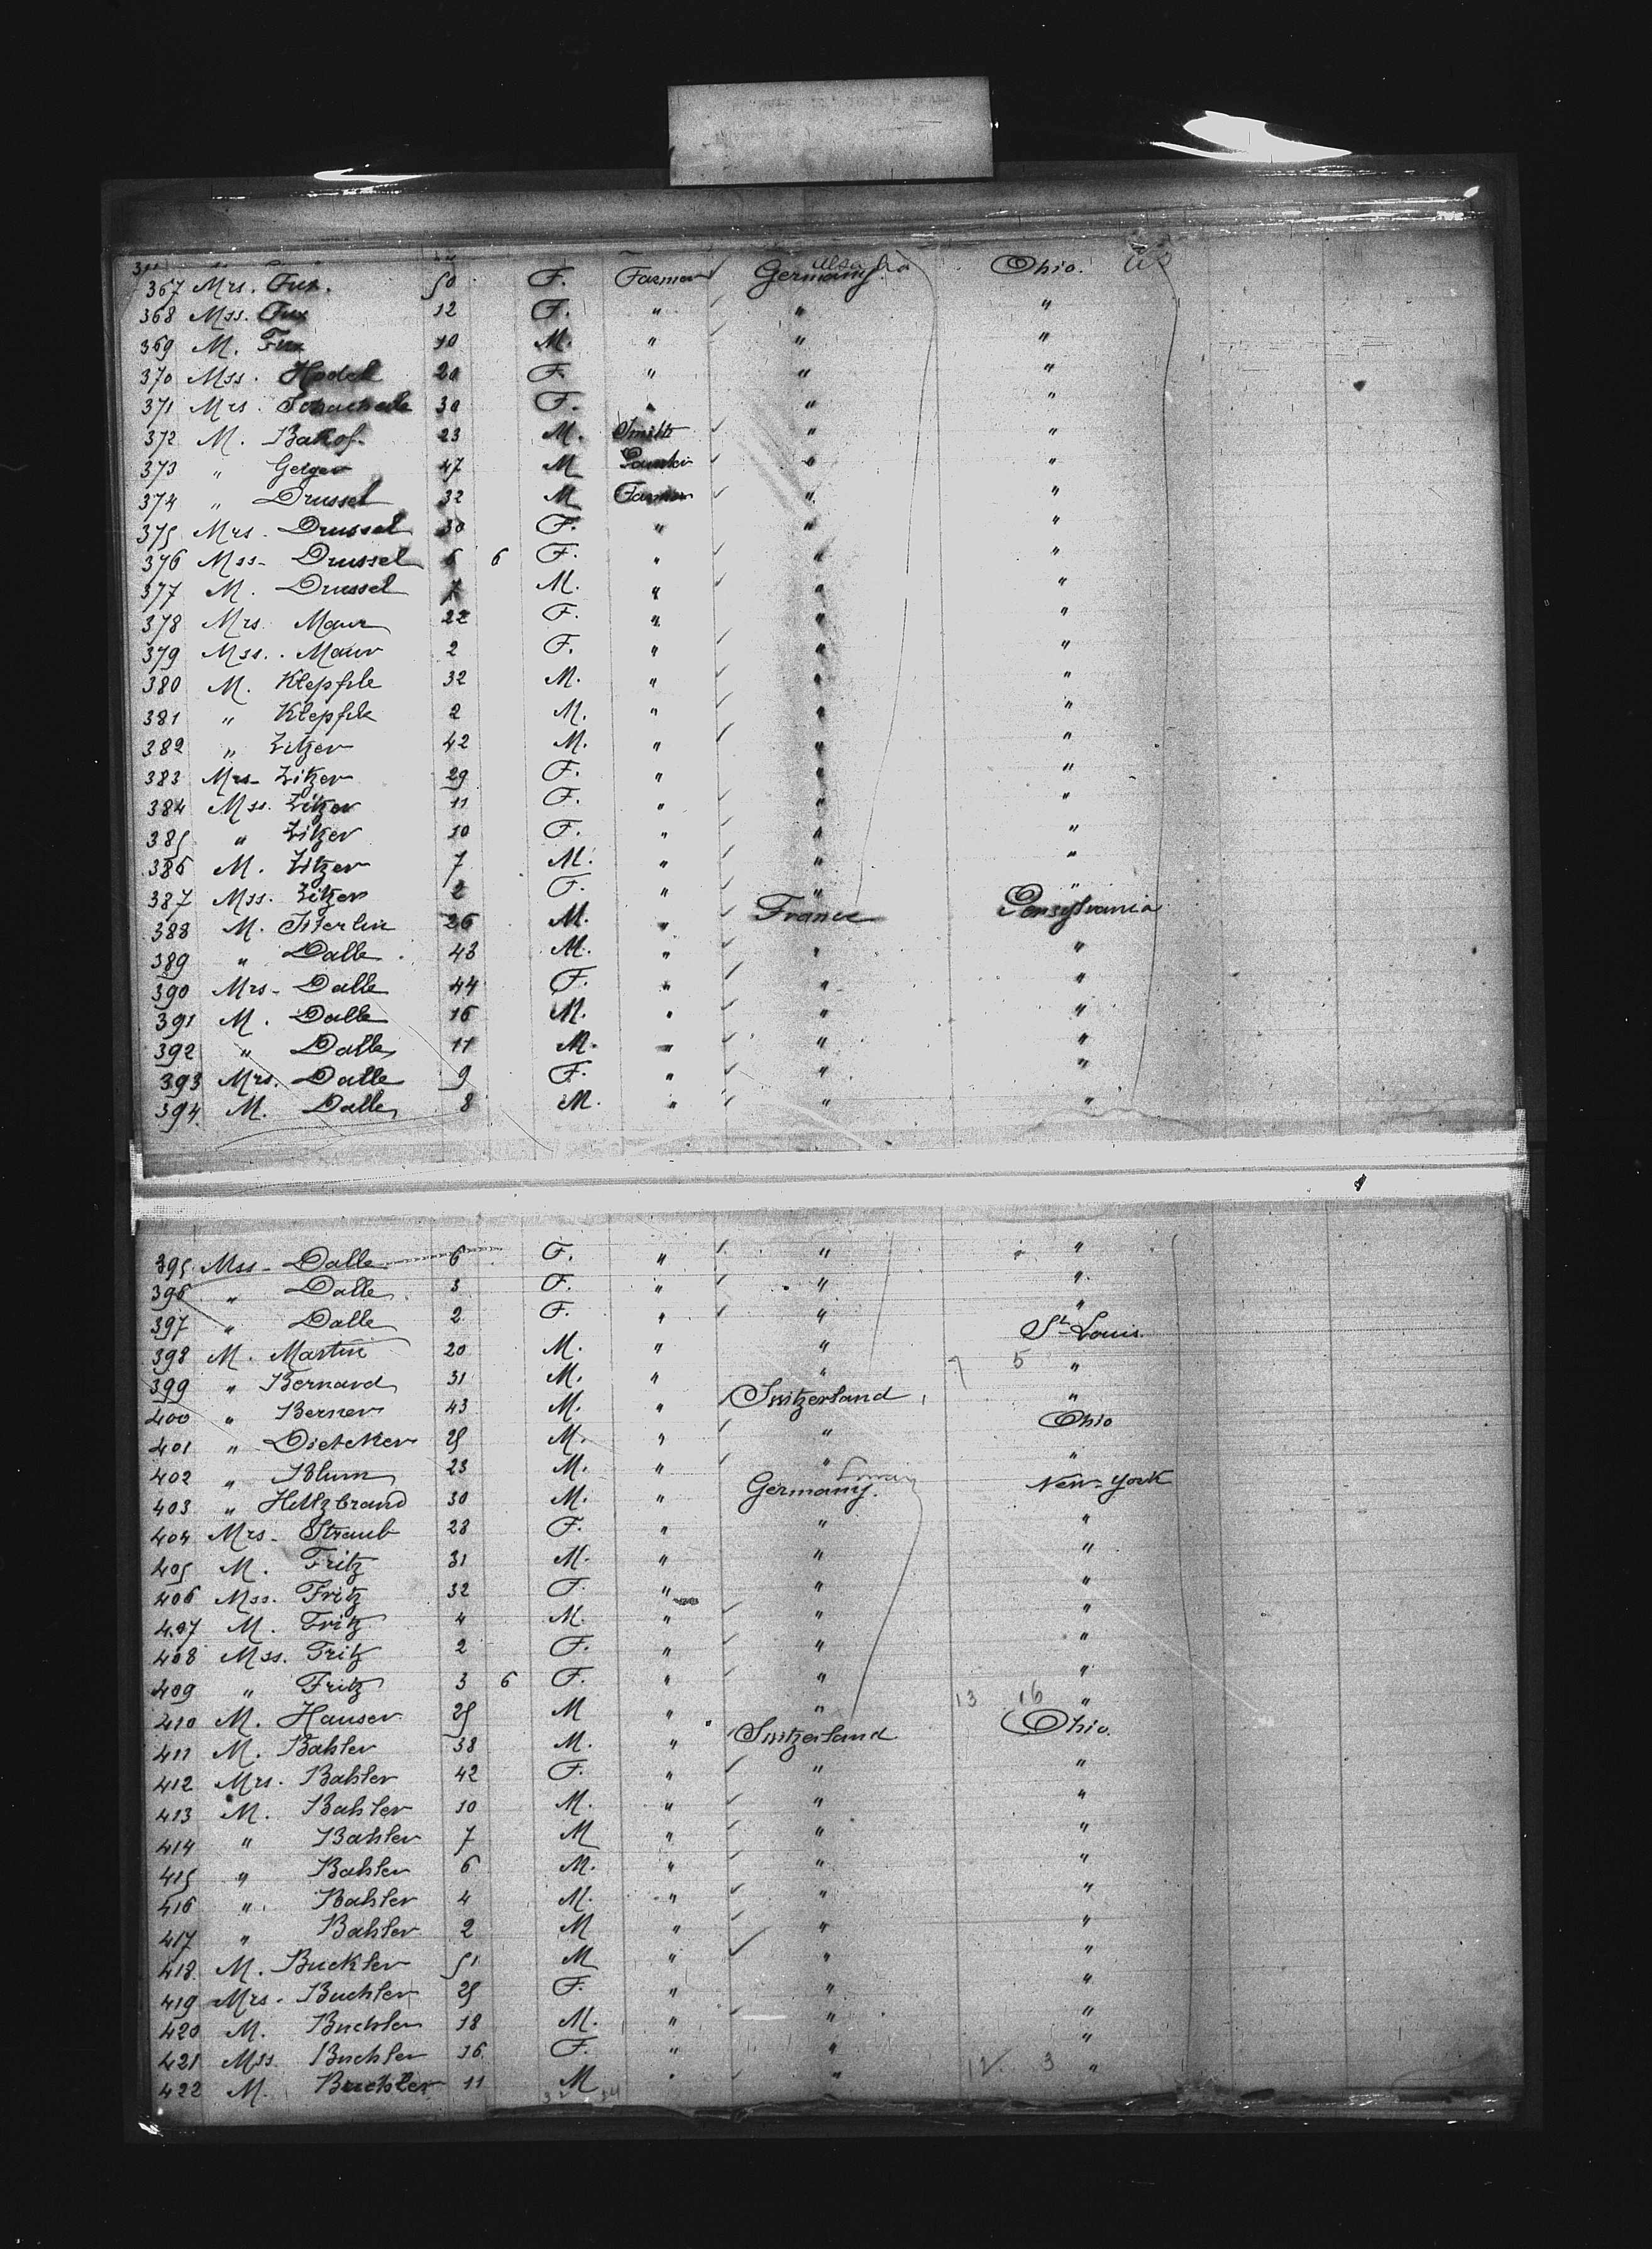 367 Mrs. Fux. 50 F. Farmer Germany. Ohio.
368 Mss. Fux 12 F. " " "
369 M. Fux 10 M. " " "
370 Mss. Hodel 20 F. " " "
371 Mrs. 30 F. " " "
372 M. Bahof. 23 M. Smith " "
373 " Geiger 47 M " "
374 " Drussel 32 M Farmer " "
375 Mrs. Drussel 30 F. " " "
376 Mss- Drussel 6 6 F. " " "
377 M. Drussel 7 M. " " "
378 Mrs. Maur 22 F. " " "
379 Mss. Maur 2 F. " " "
380 M. Klepfile 32 M. " " "
381 " Klepfile 2 M. " " "
382 " Zitzer 42 M. " " "
383 Mrs- Zitzer 29 F. " " "
384 Mss. Zitzer 11 F. " " "
385 " Zitzer 10 F. " " "
386 M. Zitzer 7 M. " " "
387 Mss. Zitzer 2 F. " " "
388 M. Isterlin 26 M. " France Pensylvania
389 " Dalle 43 M. " " "
390 Mrs- Dalle 44 F. " " "
391 M. Dalle 16 M. " " "
392 " Dalle 11 M. " " "
393 Mrs. Dalle 9 F. " " "
394. M. Dalle 8 M. " " "
395 Mss- Dalle 6 F. " " "
396 " Dalle 3 F. " " "
397 " Dalle 2 F. " " "
398 M. Martin 20 M. " " St Louis.
399 " Bernard 31 M. " " 7 5 "
400 " Berner 43 M. " Switzerland "
401 " Dietcker 25 M. " " Ohio
402 " Blum 23 M. " " "
403 " Hiltzbrand 30 M. " Germany. New-York
404 Mrs- Straub 28 F. " " "
405 M. Fritz 31 M. " " "
406 Mss. Fritz 32 F. " " "
407 M. Fritz 4 M. " " "
408 Mss. Fritz 2 F. " " "
409 " Fritz 3 6 F. " " "
410 M. Hauser 25 M " " 13 16 "
411 M. Bahler 38 M. " Switzerland. Ohio.
412 Mrs. Bahler 42 F. " " "
413 M. Bahler 10 M. " " "
414 " Bahler 7 M " " "
415 " Bahler 6 M. " " "
416 " Bahler 4 M. " " "
417 " Bahler 2 M " " "
418. M. Buckler 51 M " " "
419 Mrs. Buchler 25 F. " " "
420 M. Buchler 18 M. " " "
421 Mss. Buchler 16. F. " " "
422 M. Buchler 11 M " " 12 3 "